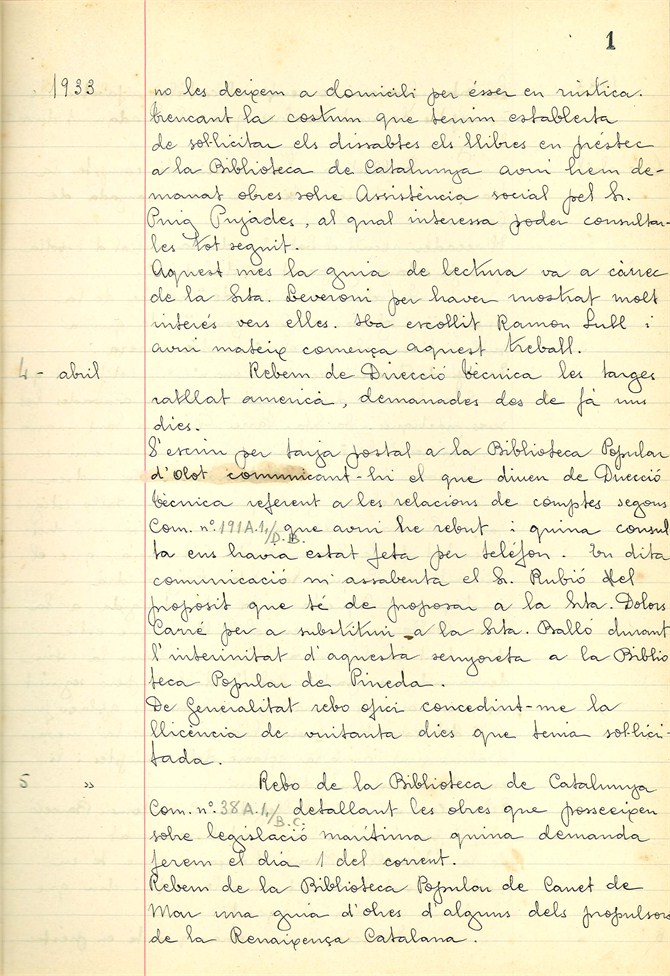 1
1933 no les deixem a domicili per ésser en rústica.
Trencant la costum que tenim establerta
de sol·licitar els dissabtes els llibres en préstec
a la Biblioteca de Catalunya avui hem de-
manat obres sobre Assistència social pel Sr.
Puig Pujades, al qual interessa poder consultar-
les tot seguit.
Aquest mes la guia de lectura va a càrrec
de la Srta. Leveroni per haver mostrat molt
interés vers elles. Ha escollit Ramon Lull i
avui mateix comença aquest treball.
4 - abril Rebem de Direcció tècnica les targes
ratllat americà, demanades dos de fà uns
dies.
S'escriu per tarja postal a la Biblioteca Popular
d'Olot comunicant-hi el que diuen de Direcció
tècnica referent a les relacions de comptes segons
Com. nº. 191A.1./D.B. que avui he rebut i quina consul
ta ens havia estat feta per telèfon. En dita
comunicació m'assabenta el Sr. Rubió del
propòsit que té de proposar a la Srta. Dolors
Carré per a substituir a la Srta. Balló durant
l'interinitat d'aquesta senyoreta a la Biblio
teca Popular de Pineda.
De Generalitat rebo ofici concedint-me la
llicència de vuitanta dies que tenia sol·lici-
tada.
5 " Rebo de la Biblioteca de Catalunya
Com. nº. 38A.1./B.C. detallant les obres que posseeixen
sobre legislació marítima quina demanda
ferem el dia 1 del corrent.
Rebem de la Biblioteca Popular de Canet de
Mar una guia d'obres d'alguns dels propulsors
de la Renaixença Catalana.